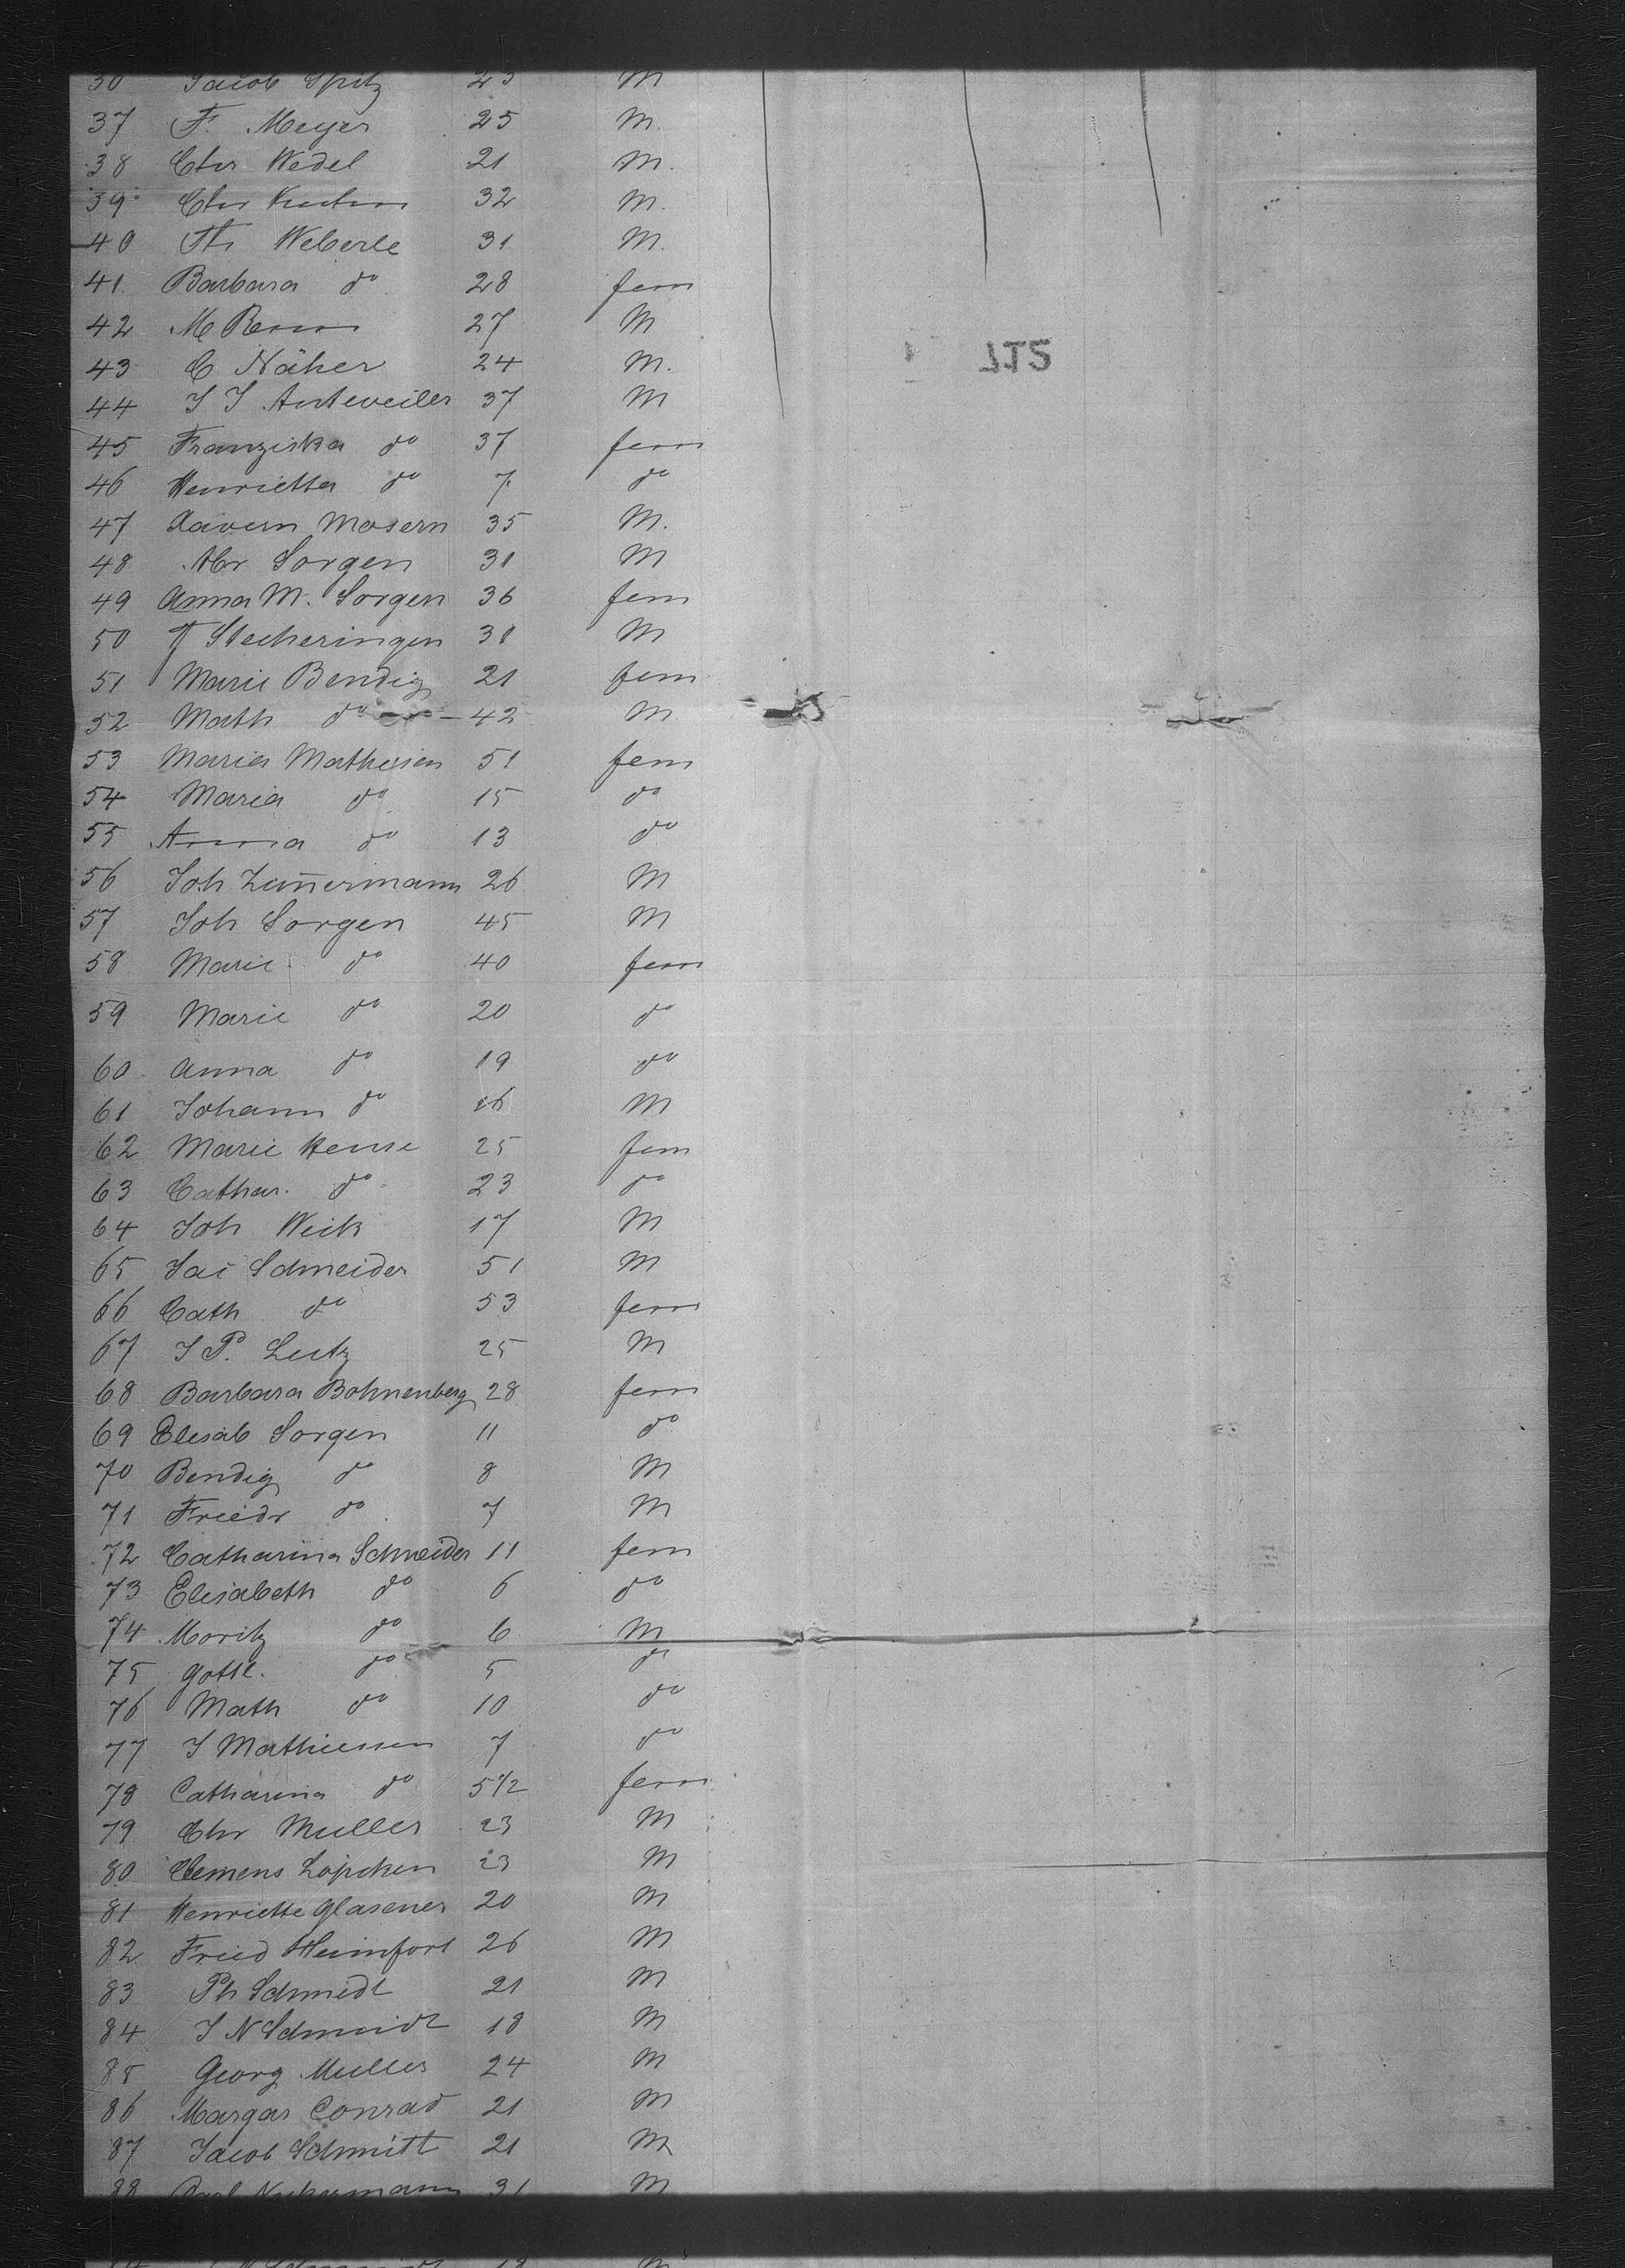 Jacob Spitz M
37 F. Meyer 25 M.
38 Chr Wedel 21 M.
39 Chr 32 M.
40 Weberle 31 M.
41. Barbara do 28 fem
42 M 27 M
43 C Näher 24 M.
44 J J Antweiler 37 M
45 Franziska do 37 fem
46 Henrietta do 7 do
47 Xavern Mosern 35 M.
48 Sorgen M
49 Anna M. Sorgen 36 fem
50 Stecheringen M
51 Marie Bendig 21 fem
52 Math do 42 M
53 Maria 51 fem
54 Maria do 15 do
55 Anna do 13 do
56 Joh Zim̄ermann 26 M
57 Joh Sorgen 45 M
58 Marie do 40 fem
59 Marie do 20 do
60 Anna do 19 do
61 Johann do 16 M
62 Marie 25 fem
63 Cathar. do 23 do
64 Joh Weik 17 M
65 Schneider 51 M
66 Cath do 53 fem
67 J P. Lutz 25 M
68 Barbara Bohnenberg 28 fem
69 Elisab Sorgen 11 do
70 Bendig do 8 M
71 Friedr do 7 M
72 Catharina Schneider 11 fem
73 Elisabeth do 6 do
74 Moritz do 6 M
75 Gottl. do 5 do
76 Math do 10 do
77 J Mathiessen 7 do
78 Catharina do 5 1/2 fem
79 Chr Muller 23 M
80 Clemens 23 M
81 Henriette Glasener 20 M
82 Fried Heimfort 26 M
83 Ph Schmidt 21 M
84 J N Schmidt 18 M
85 Georg Muller 24 M
86 Margar Conrad 21 M
87 Jacob Schmitt 21 M
88 Carl 31 M
715